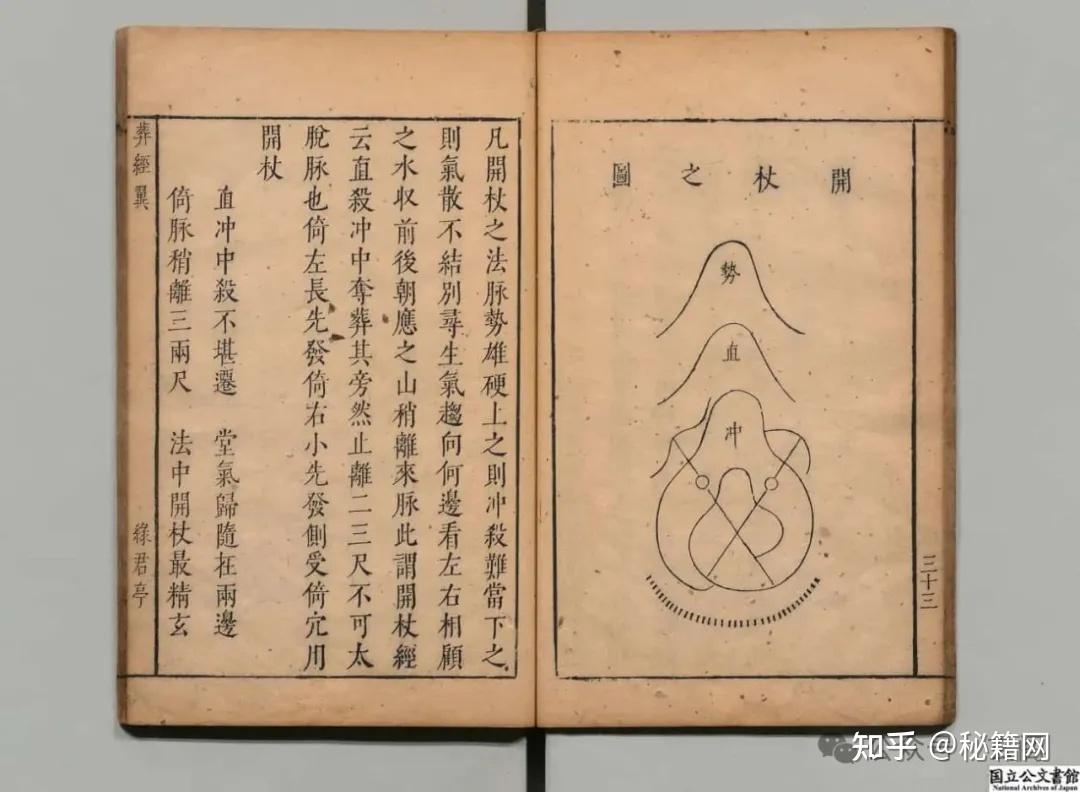 三十三
開杖之圖
勢
直
冲
凡開杖之法脉勢雄硬上之則冲殺難當下之
則氣散不結別尋生氣趨向何邊看左右相顧
之水収前後朝應之山稍離來脉此謂開杖經
云直殺冲中奪葬其旁然止離二三尺不可太
脫脉也倚左長先發倚右小先發側受倚穴用
開杖
直冲中殺不堪遷 堂氣歸隨在兩邊
倚脉稍離三兩尺 法中開杖最精玄
葬經翼 綠君亭
知乎 @秘籍网
国立公文書館
National Archives of Japan